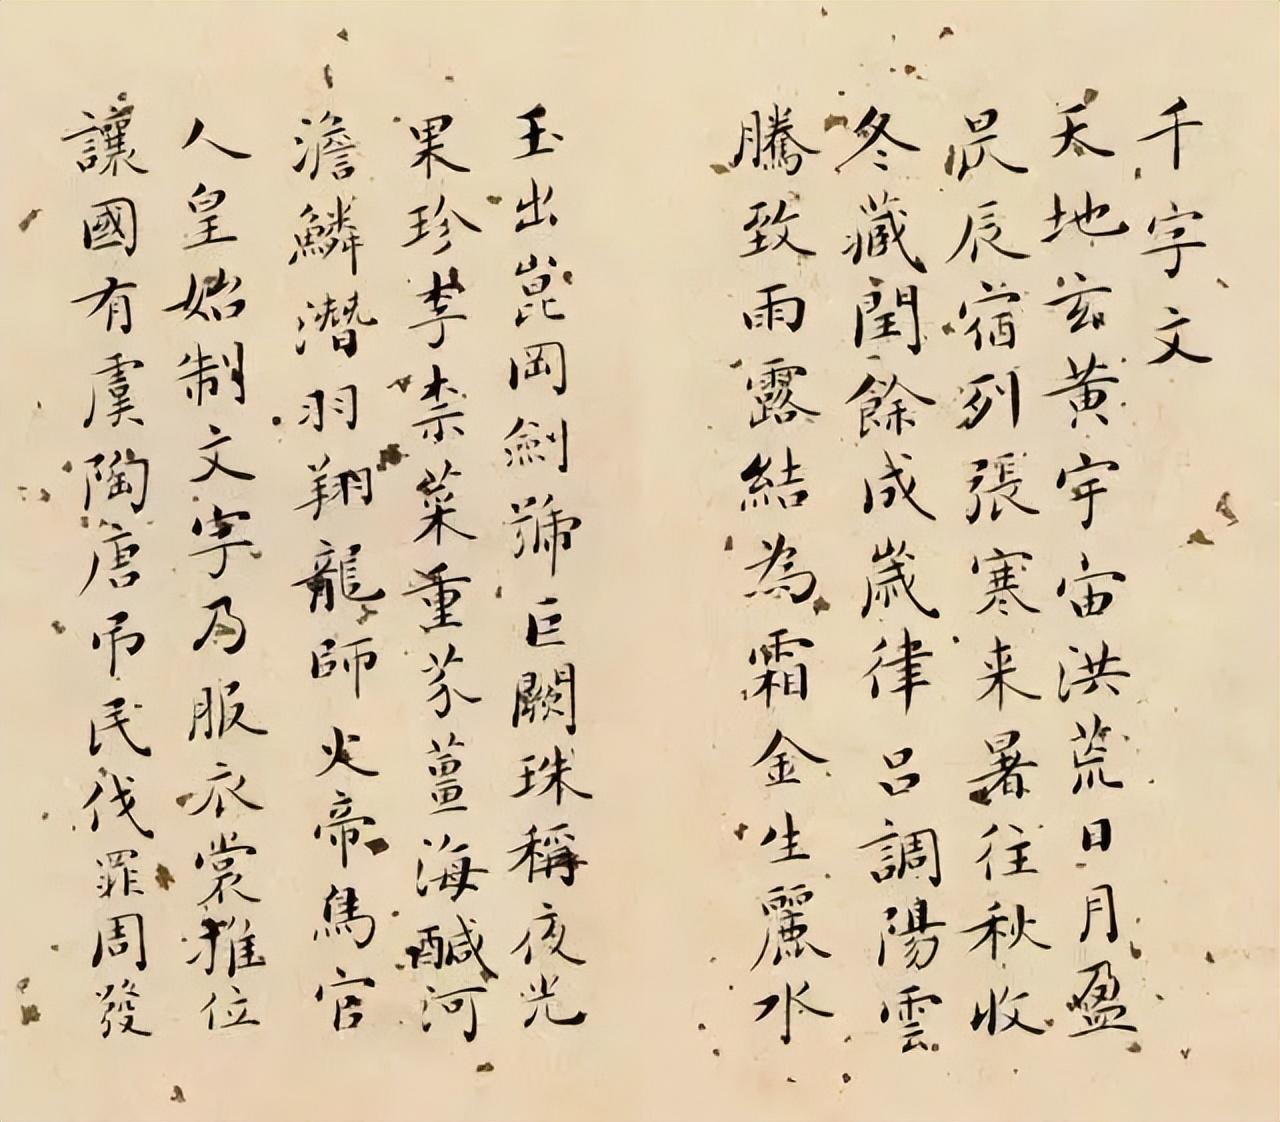 千字文
天地玄黃宇宙洪荒日月盈
昃辰宿列張寒来暑往秋收
冬藏閏餘成歲律呂調陽雲
騰致雨露結為霜金生麗水
玉出崑岡劍號巨闕珠稱夜光
果珍李柰菜重芥薑海醎河
澹鱗潛羽翔龍師火帝鳥官
人皇始制文字乃服衣裳推位
讓國有虞陶唐吊民伐罪周發